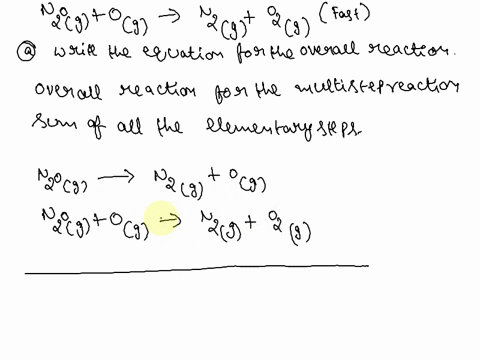 N2O(g) + O(g) → N2(g) + O2(g) (Fast)
ⓐ Write the equation for the overall reaction.
Overall reaction for the multistep reaction
sum of all the elementary steps
N2O(g) → N2(g) + O(g)
N2O(g) + O(g) → N2(g) + O2(g)